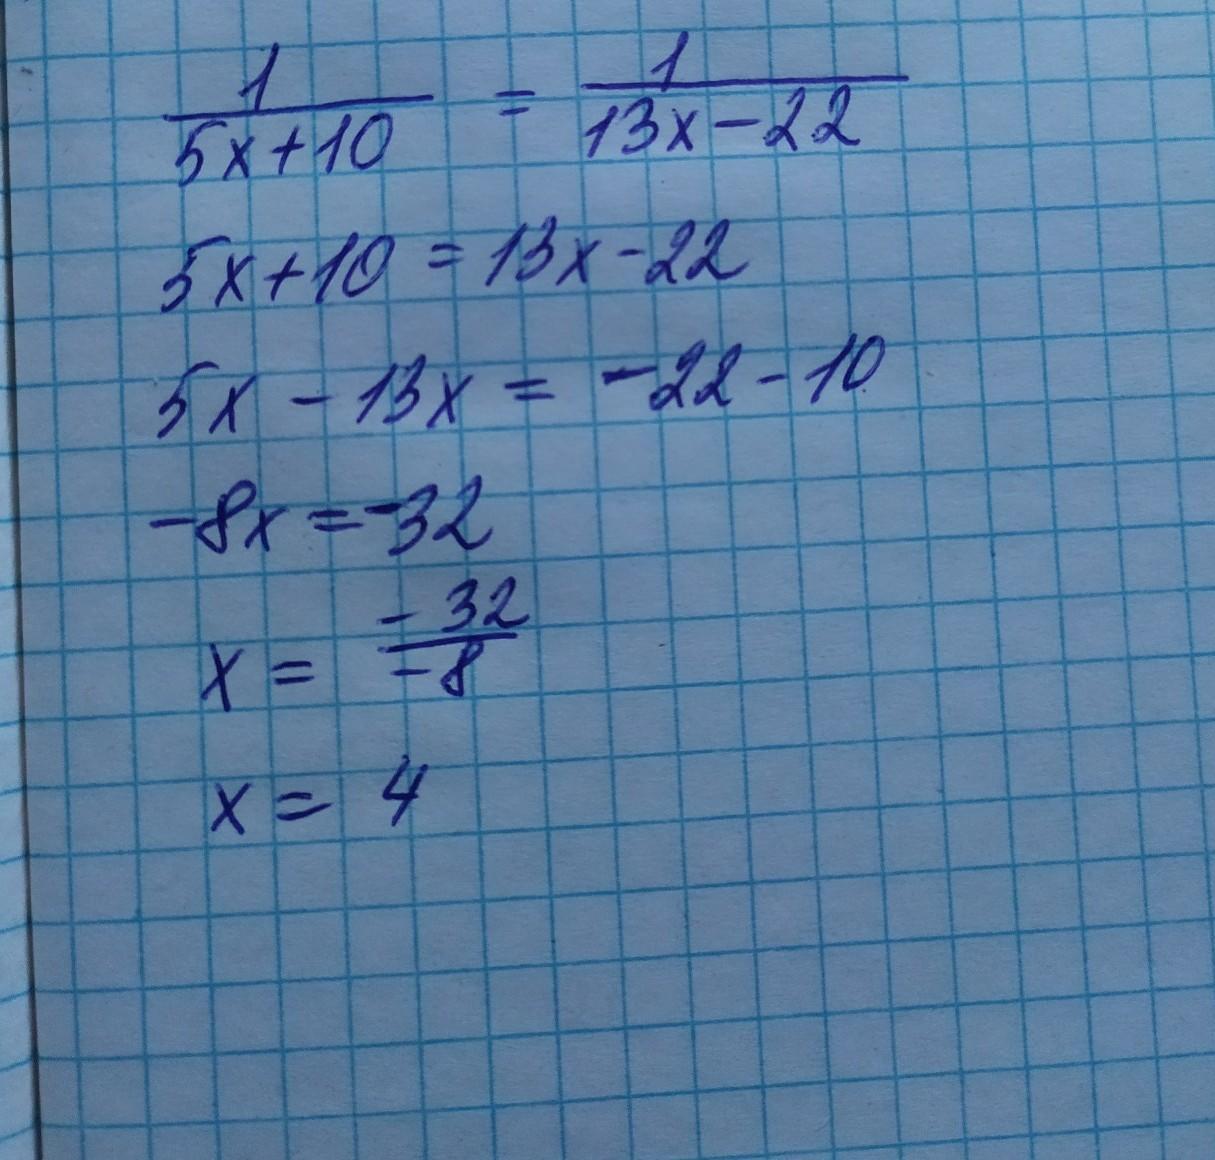 1/(5x+10) = 1/(13x-22)
5x+10 = 13x-22
5x - 13x = -22 - 10
-8x = -32
x = -32/-8
x = 4